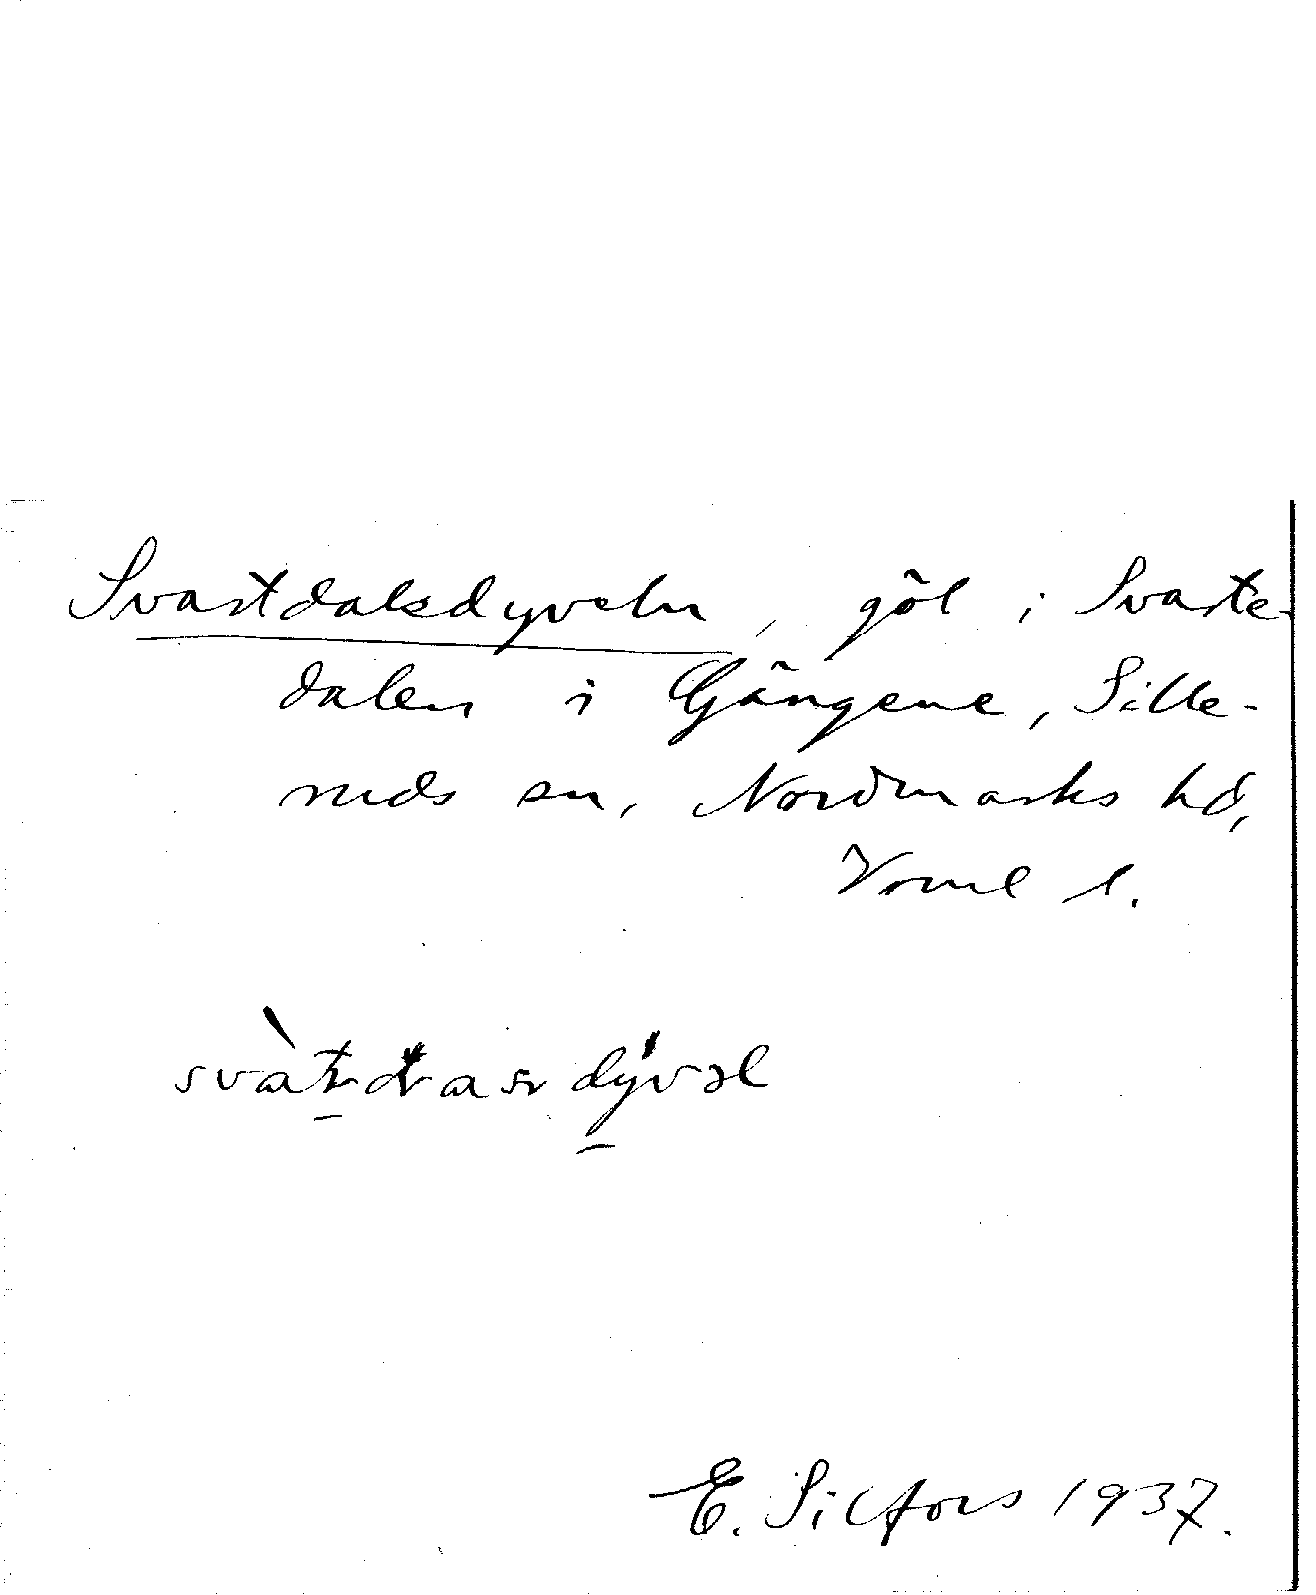 Svartdalsdyveln, göl i Svarte-
dalen i Gängene, Sille-
ruds sn, Nordmarks hd,
Värml l.
E. Silfors 1937.